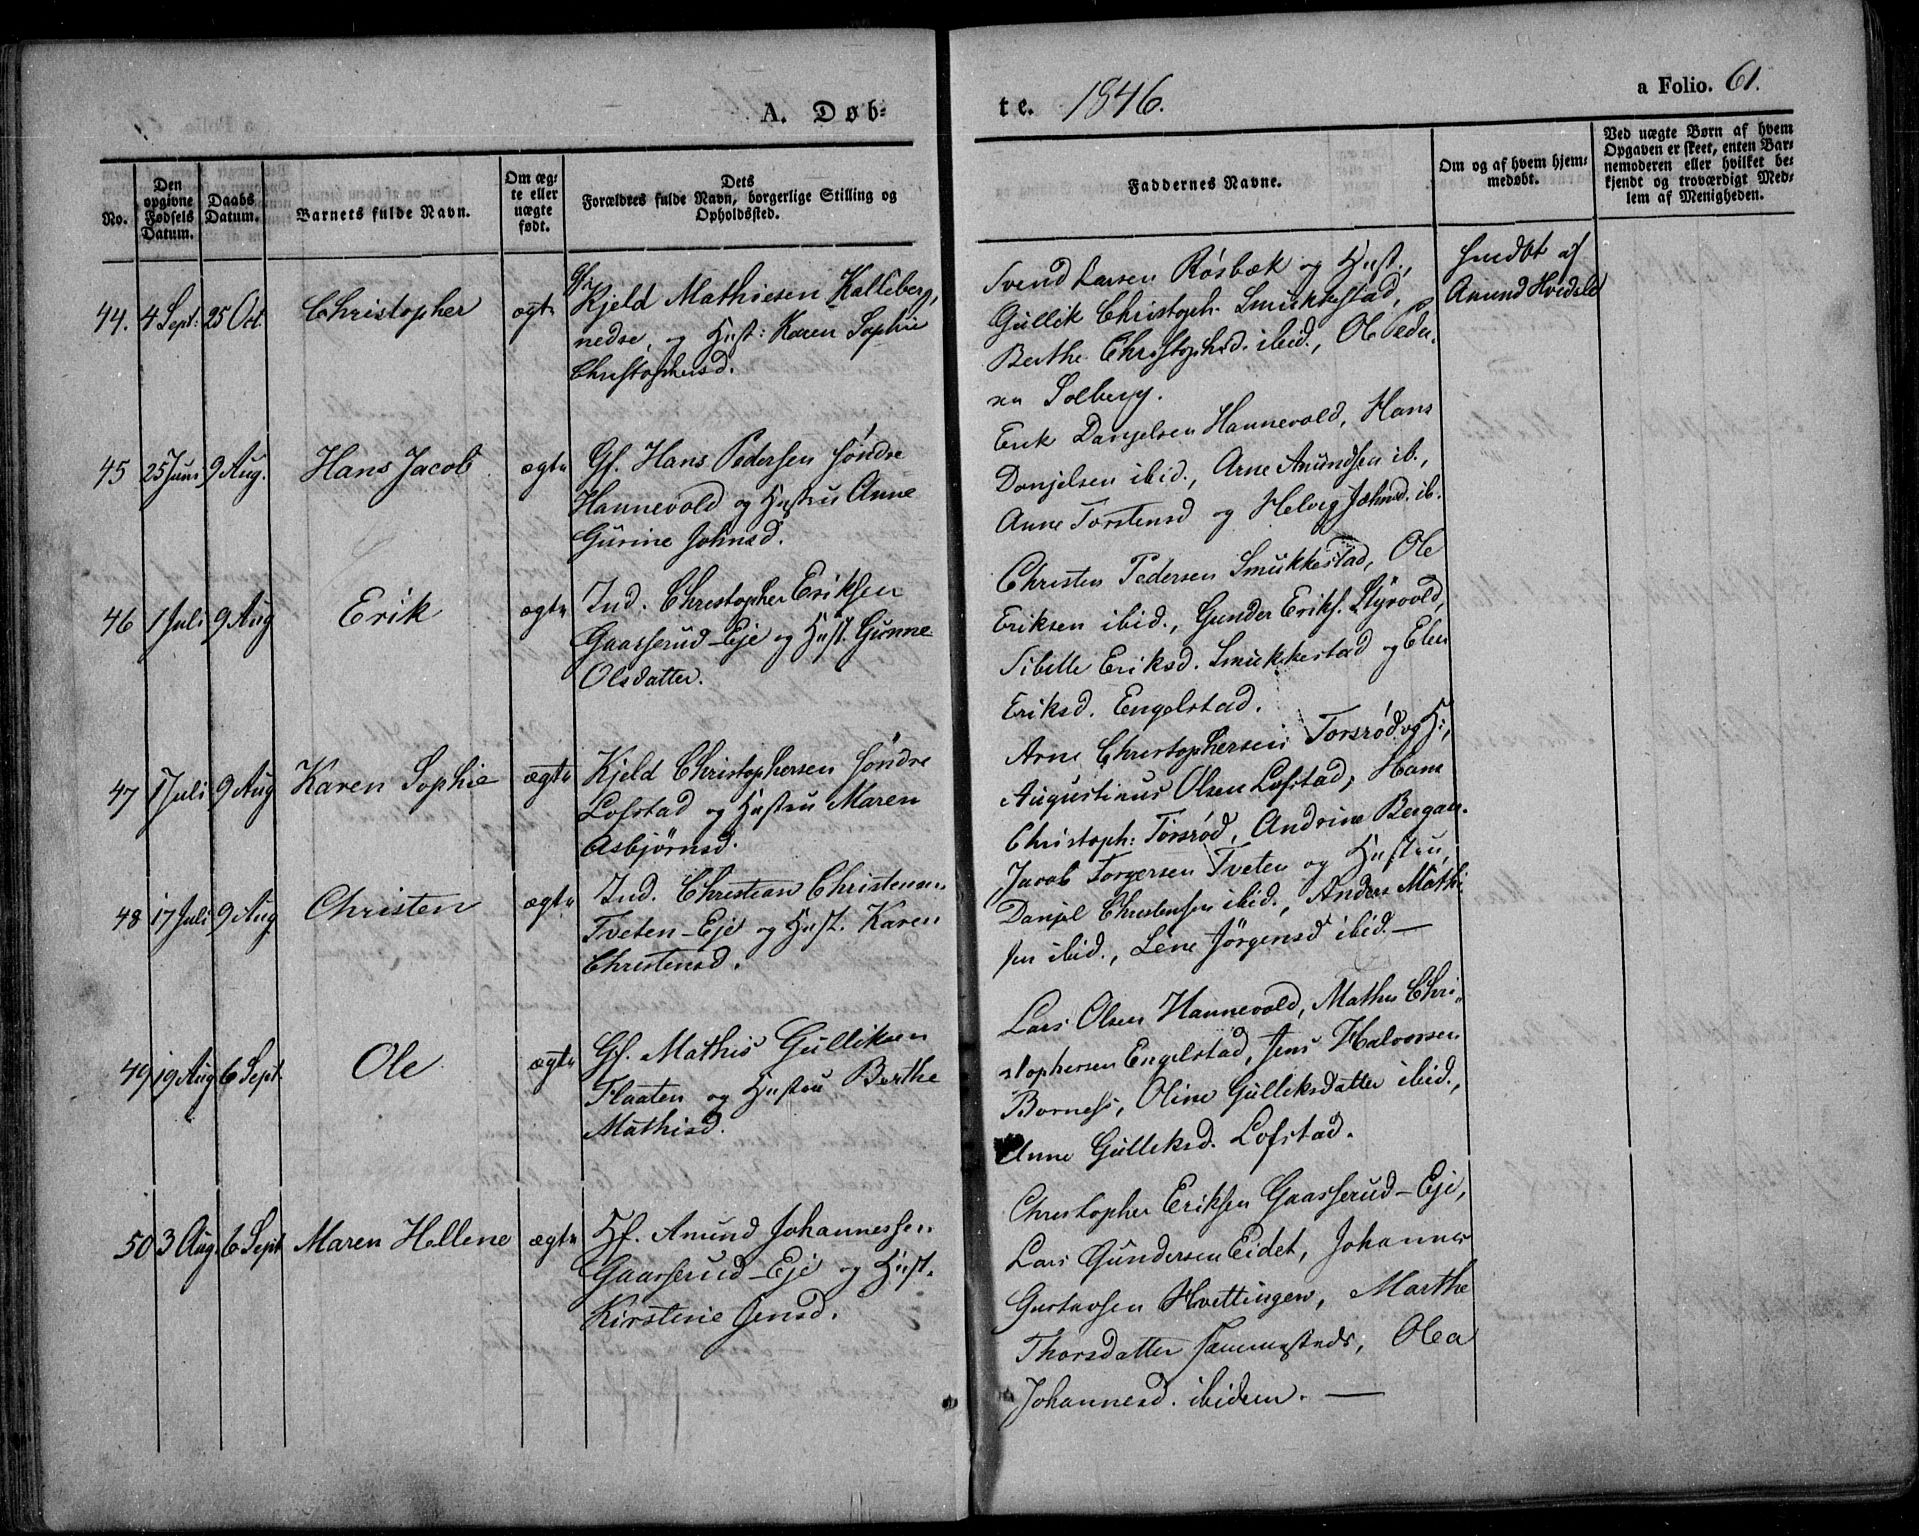 A. Døb-
te. 1846.
a Folio. 61.
No.
Den opgivne Fødsels Datum.
Daabs Datum.
Barnets fulde Navn.
Om ægte eller uægte født.
Dets Forældres fulde Navn, borgerlige Stilling og Opholdssted.
Faddernes Navne.
Om og af hvem hjemmedøbt.
Ved uægte Børn af hvem Opgaven er skeet, enten Barnemoderen eller hvilket bekjendt og troværdigt Medlem af Menigheden.
44. 4 Sept. 25 Oct. Christopher ægte
Gf. Kjeld Mathiesen Kalleberg,
nedre, og Hust: Karen Sophie
Christophersd.
Svend Larsen Røsbæk og Hust.,
Gullik Christoph. Smukkestad,
Berthe Christophsd. ibid., Ole Peder-
sen Solberg.
hmdbt af
Anund Hvidsle
45 25 Juni 9 Aug. Hans Jacob ægte
Gf. Hans Pedersen søndre
Hannevold og Hustru Anne
Gurine Johnsd.
Erik Danjelsen Hannevold, Hans
Danjelsen ibid., Arne Anundsen ib.,
Anne Torstensd og Helvig Johnsd. ib.
46 1 Juli 9 Aug Erik ægte
Ind. Christopher Eriksen
Gaasserud-Eje og Hust. Gunne
Olsdatter.
Christen Pedersen Smukkestad, Ole
Eriksen ibid., Gunder Eriks. Styrvold,
Sibille Eriksd. Smukkestad og Elen
Eriksd. Engelstad.
47 1 Juli 9 Aug Karen Sophie ægte
Kjeld Christophersen søndre
Lofstad og Hustru Maren
Asbjørnsd.
Arne Christophersen Torsrød og H.,
Augustinus Olsen Lofstad, Hans
Christoph: Torsrød, Andrine Bergan.
48 17 Juli 9 Aug Christen ægte
Ind. Christian Christensen
Tveten-Eje og Hust. Karen
Christensd.
Jacob Torgersen Tveten og Hustru,
Danjel Christensen ibid., Anders Mathi-
sen ibid., Lene Jørgensd ibid. —
49 19 Aug 6 Sept. Ole ægte
Gf. Mathis Gulliksen
Flaaten og Hustru Berthe
Mathisd.
Lars Olsen Hannevold, Mathis Chri-
stophersen Engelstad, Jens Halvorsen
Borness, Oline Gulliksdatter ibid.,
Anne Gulliksd. Lofstad.
50 3 Aug. 6 Sept Maren Hellene ægte
Hf. Anund Johannessen
Gaasserud-Eje og Hust.
Kirstine Jensd.
Christopher Eriksen Gaasserud-Eje,
Lars Gundersen Eidet, Johannes
Gustavsen Hvittingen, Marthe
Thorsdatter, Olea
Johannesd. ibidem. —